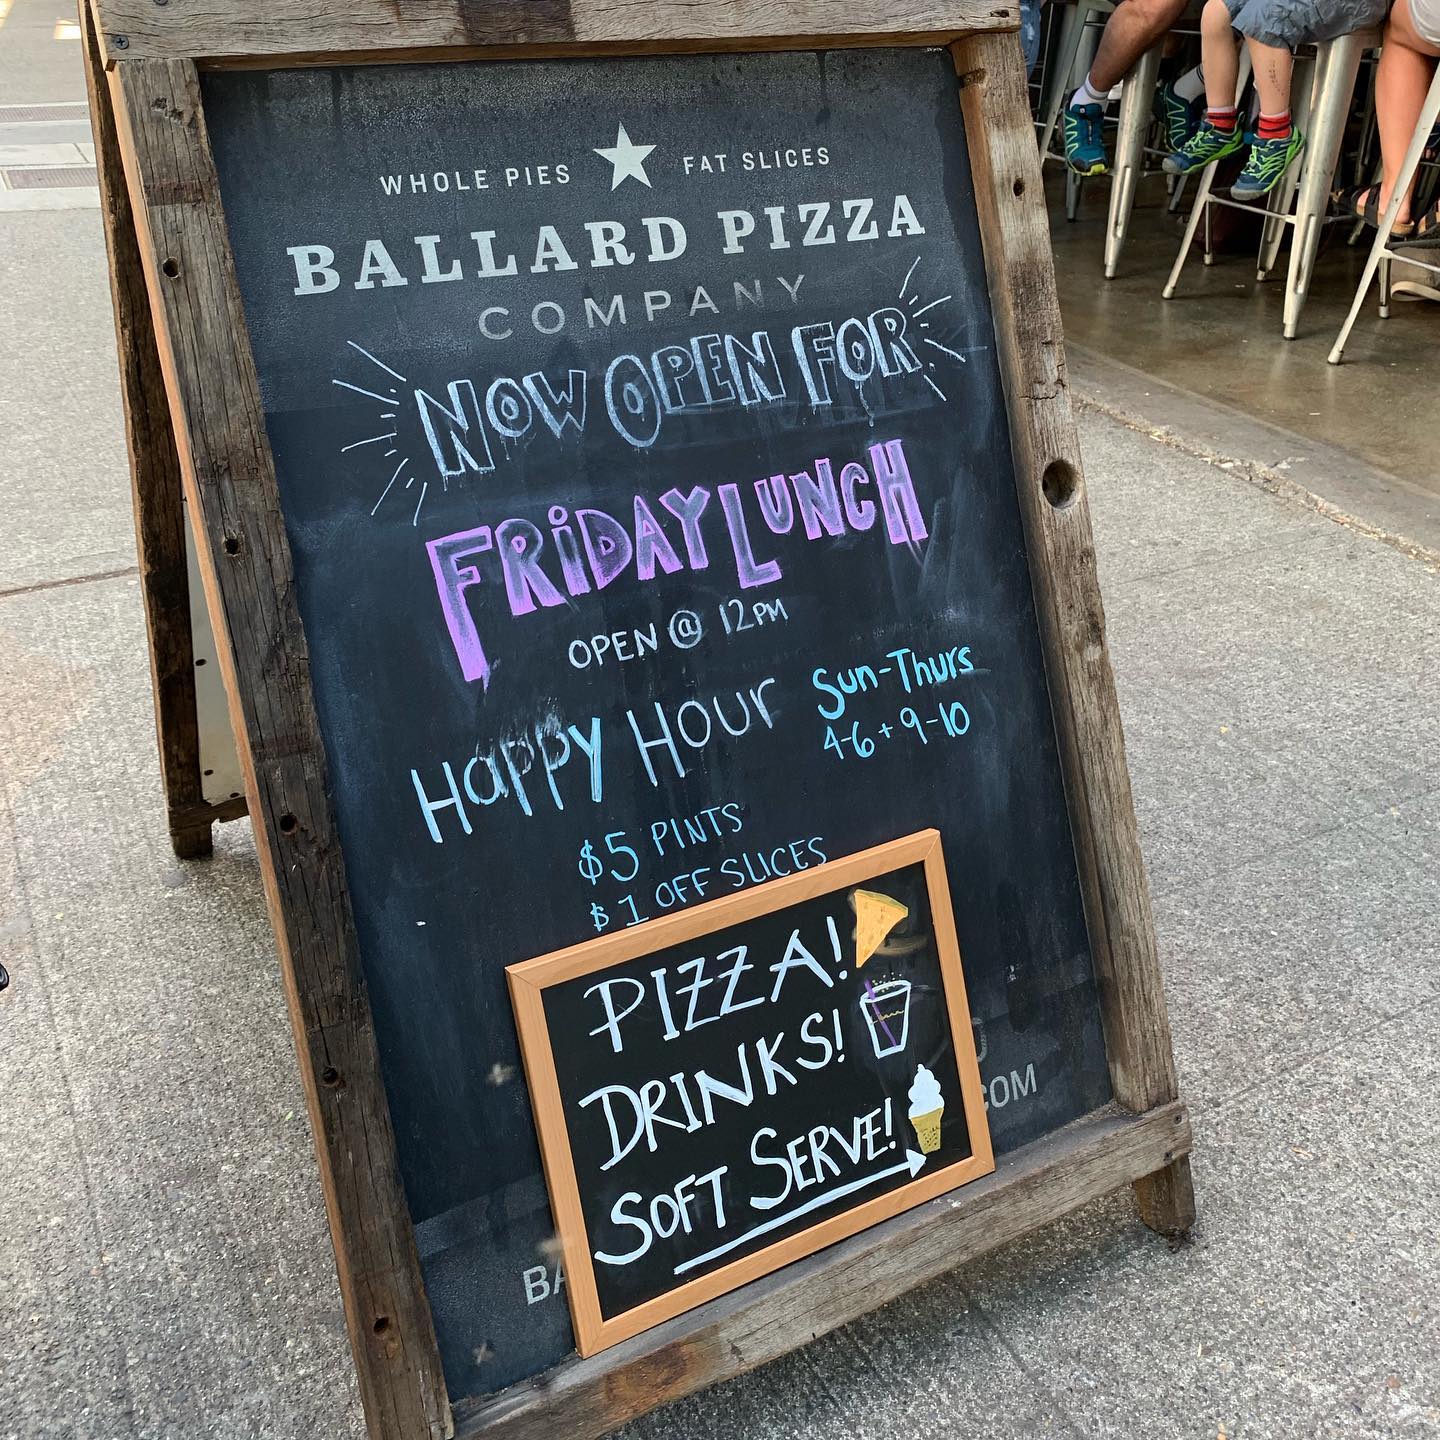 WHOLE PIES ★ FAT SLICES
BALLARD PIZZA
COMPANY
NOW OPEN FOR
FRiDAY LUNCH
OPEN @ 12PM
HAPPY HOUR
Sun-Thurs
4-6 + 9-10
$5 PINTS
$1 OFF SLICES
PIZZA!
DRINKS!
SOFT SERVE!
BA
.COM